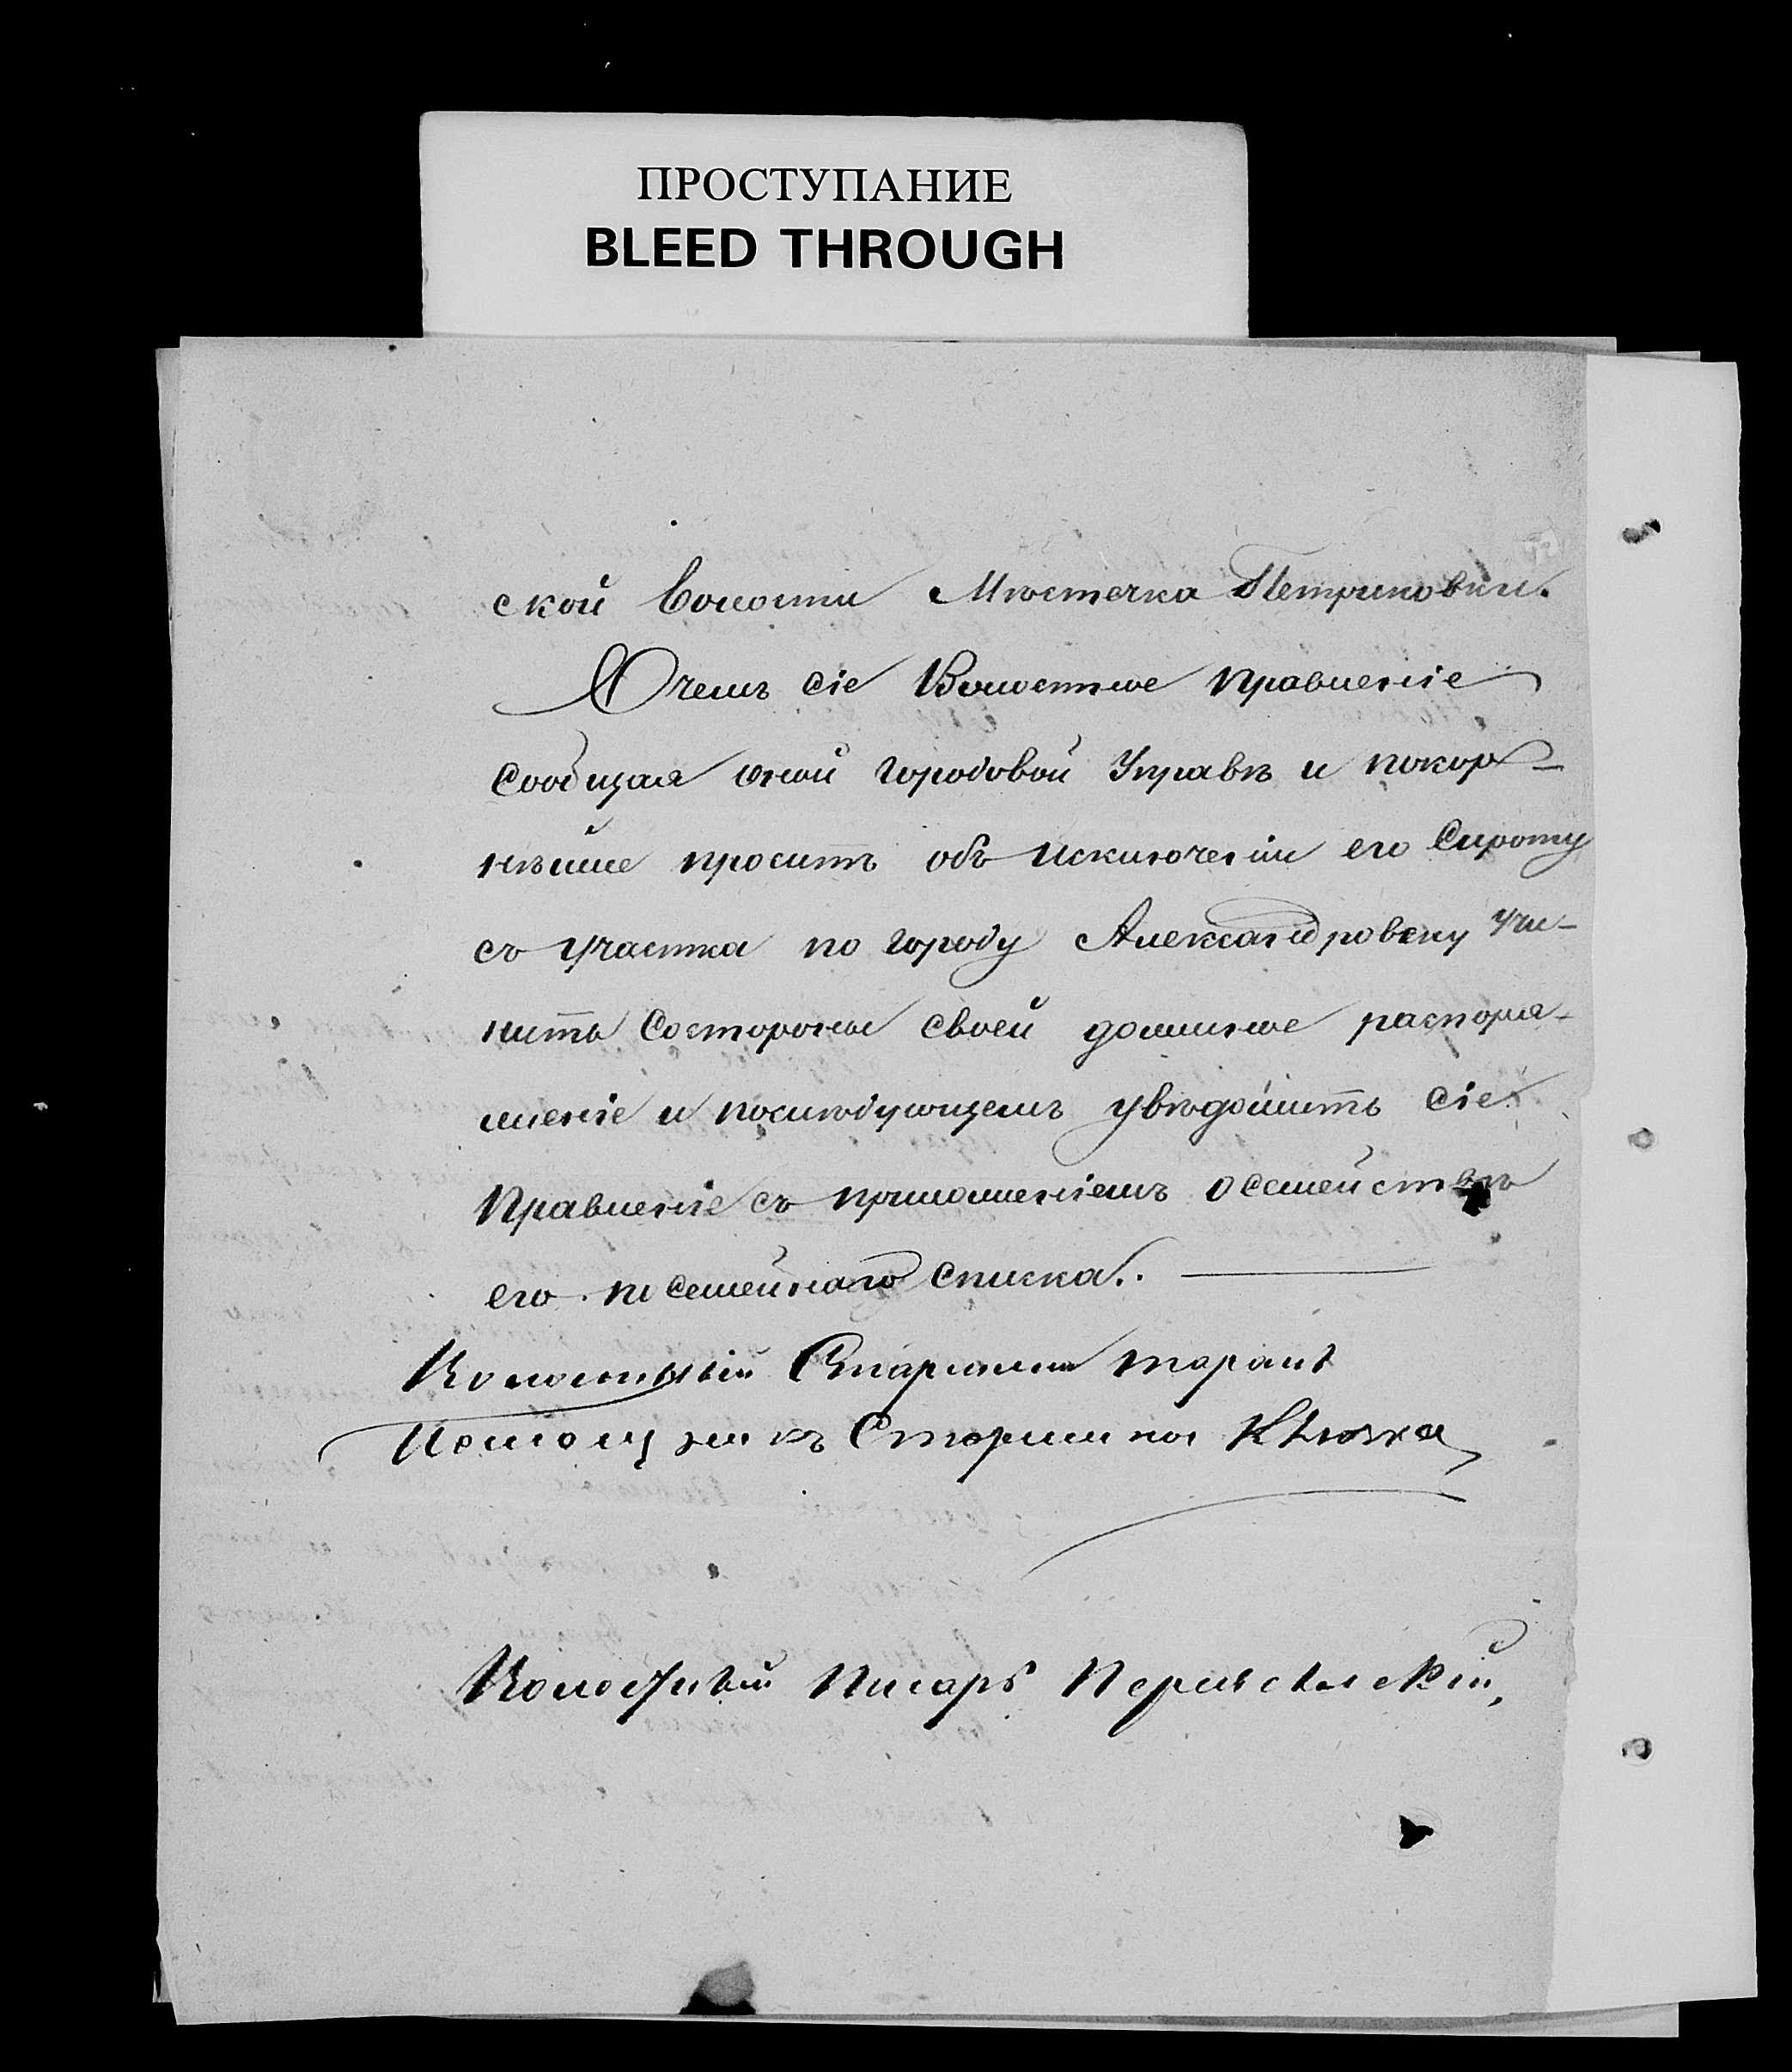 ПРОСТУПАНИЕ
BLEED THROUGH
ской Волости Мѣстечка Петриковки.
О чемъ сіе Волостное Правленіе
сообщая оной Городовой Управѣ и покор-
нѣйше проситъ объ исключеніи его Сироту
съ участка по городу Александровску учи-
нить состороны своей должное распоря-
женіе и послѣдующемъ увѣдомить сіе
Правленіе съ приложеніемъ о семействѣ
его посемейнаго списка.
Волостный Старшина
Помощникъ Старшины Клюжка
Волостный Писарь